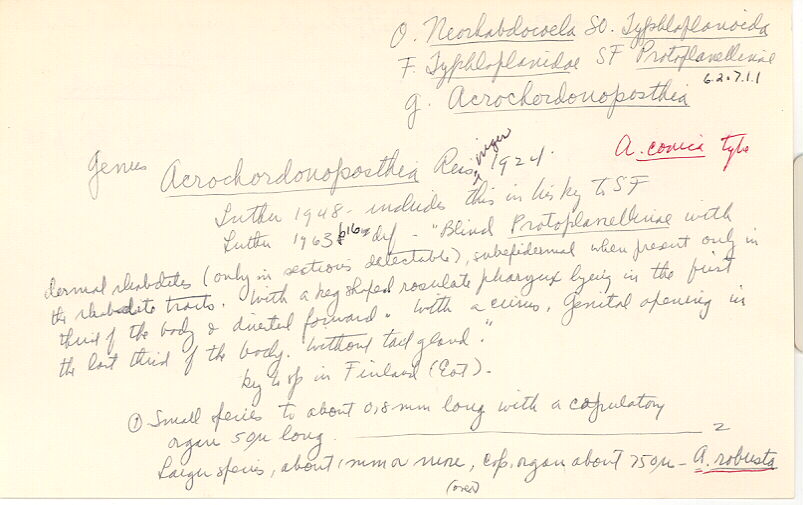 O. Neorhabdocoela SO. Typhloplanoida
F. Typhloplanidae SF Protoplanellinae
6.2.7.1.1
g. Acrochordonoposthia
A. conica type
Genus Acrochordonoposthia Reisinger 1924.
Luther 1948 - includes this in his key to SF
Luther 1963 p16 - def - "Blind Protoplanellinae with
dermal rhabdites (only in sections detectable), subepidermal when present only in
the rhabdite tracts. With a keg shaped rosulate pharynx lying in the first
third of the body & directed forward. With a cirrus. Genital opening in
the last third of the body. Without tail gland."
key to sp in Finland (Eat).
① Small species to about 0,8 mm long with a copulatory
organ 50µ long. 2
Larger species, about 1 mm or more, cop. organ about 750µ - A. robusta
(over)